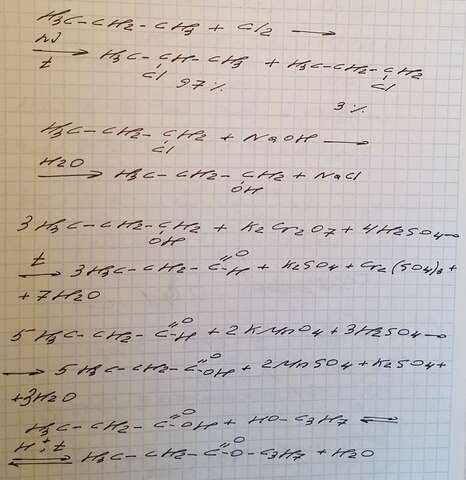 H3C-CH2-CH3 + Cl2 ⟶
hν
t ⟶ H3C-CH-CH3 + H3C-CH2-CH2
Cl Cl
97% 3%
H3C-CH2-CH2 + NaOH ⟶
Cl
H2O ⟶ H3C-CH2-CH2 + NaCl
OH
3H3C-CH2-CH2 + K2Cr2O7 + 4H2SO4 ⟶
OH
t ⟶ 3H3C-CH2-C=O-H + K2SO4 + Cr2(SO4)3 +
+ 7H2O
5H3C-CH2-C=O-H + 2KMnO4 + 3H2SO4 ⟶
⟶ 5H3C-CH2-C=O-OH + 2MnSO4 + K2SO4 +
+ 3H2O
H3C-CH2-C=O-OH + HO-C3H7 ⇌
H+, t ⇌ H3C-CH2-C=O-O-C3H7 + H2O